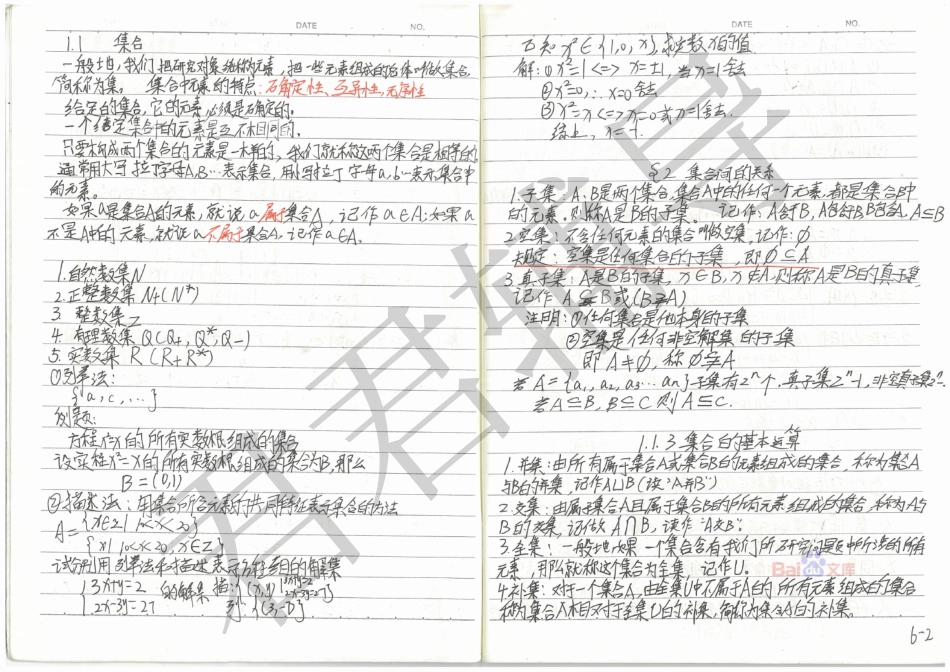 DATE NO.
1.1 集合
一般地,我们把研究对象统称为元素,把一些元素组成的总体叫做集合,
简称为集。 集合中元素的特点:确定性、互异性、无序性
给定的集合,它的元素必须是确定的。
一个给定集合中的元素是互不相同的。
只要构成两个集合的元素是一样的,我们就称这两个集合是相等的
通常用大写拉丁字母A,B…表示集合,用小写拉丁字母a,b…表示集合中
的元素。
如果a是集合A的元素,就说a属于集合A,记作a∈A;如果a
不是A中的元素,就说a不属于集合A,记作a∈A。
1.自然数集N
2.正整数集 N+(N*)
3 整数集Z
4. 有理数集 Q(Q+,Q*,Q-)
5. 实数集 R(R+R*)
①列举法:
{a,c,…}
例题:
方程x²=x的所有实数根组成的集合
设方程x²=x的所有实数根组成的集合为B,那么
B=(0,1)
②描述法:用集合所含元素的共同特征表示集合的方法
A= {x∈Z|10<x<20}
{x|10<x<20,x∈Z}
试分别用列举法和描述表示方程组的解集
{3x+y=2 的解集 描:{(x,y)|3x+y=2
{2x-3y=27 2x-3y=27} 列:{(3,-7)}
DATE NO.
已知x²∈{1,0,x},求实数x的值
解:①x²=1<=>x=±1,当x=1舍去
②x²=0,∴x=0舍去
③x²=x<=>x=0或x=1舍去.
综上,x=-1.
§2 集合间的关系
1.子集:A、B是两个集合,集合A中的任何一个元素,都是集合B中
的元素.则称A是B的子集。 记作:A含于B,B包含A,A⊆B
2.空集:不含任何元素的集合叫做空集,记作:∅
规定:空集是任何集合的子集,即∅⊆A
3.真子集:A是B的子集,x∈B,x∉A,则称A是B的真子集,
记作 A⫋B或(B⫌A)
注明:①任何集合是他本身的子集
②空集是任何非空解集的子集
即A≠∅,称∅⫋A
若A={a1,a2,a3…an}子集有2ⁿ个.真子集2ⁿ-1,非空真子集2ⁿ-
若A⊆B,B⊆C则A⊆C.
1.1.3集合的基本运算
1.并集:由所有属于集合A或集合B的元素组成的集合,称为集合A
与B的并集,记作A∪B(读:“A并B”)
2.交集:由属于集合A且属于集合B的所有元素组成的集合,称为A与
B的交集,记做A∩B,读作“A交B”.
3.全集:一般地如果一个集合含有我们所研究问题中所涉的所有
元素,那么就称这个集合为全集 记作U。
4.补集:对于一个集合A,由全集U中不属于A的所有元素组成的集合
称为集合A相对于全集U的补集,简称为集合A的补集。
6-2
君君辅导
Baidu文库